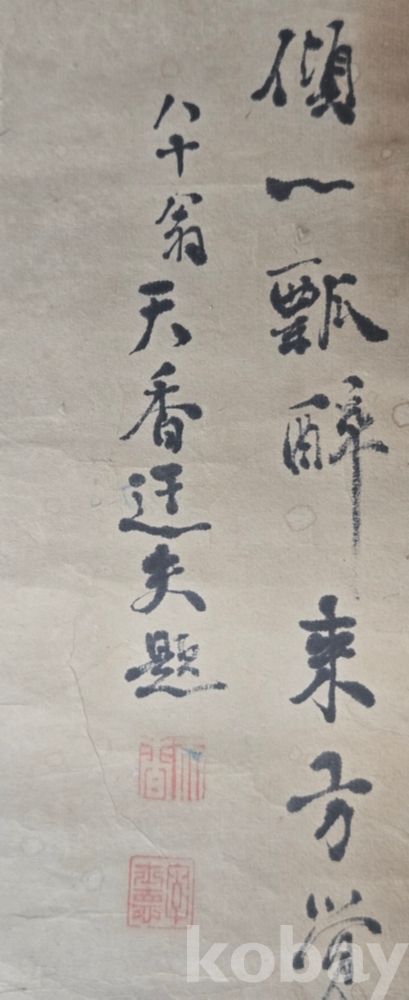 傾一瓢醉来方覺
八十翁天香迂夫題
kobay